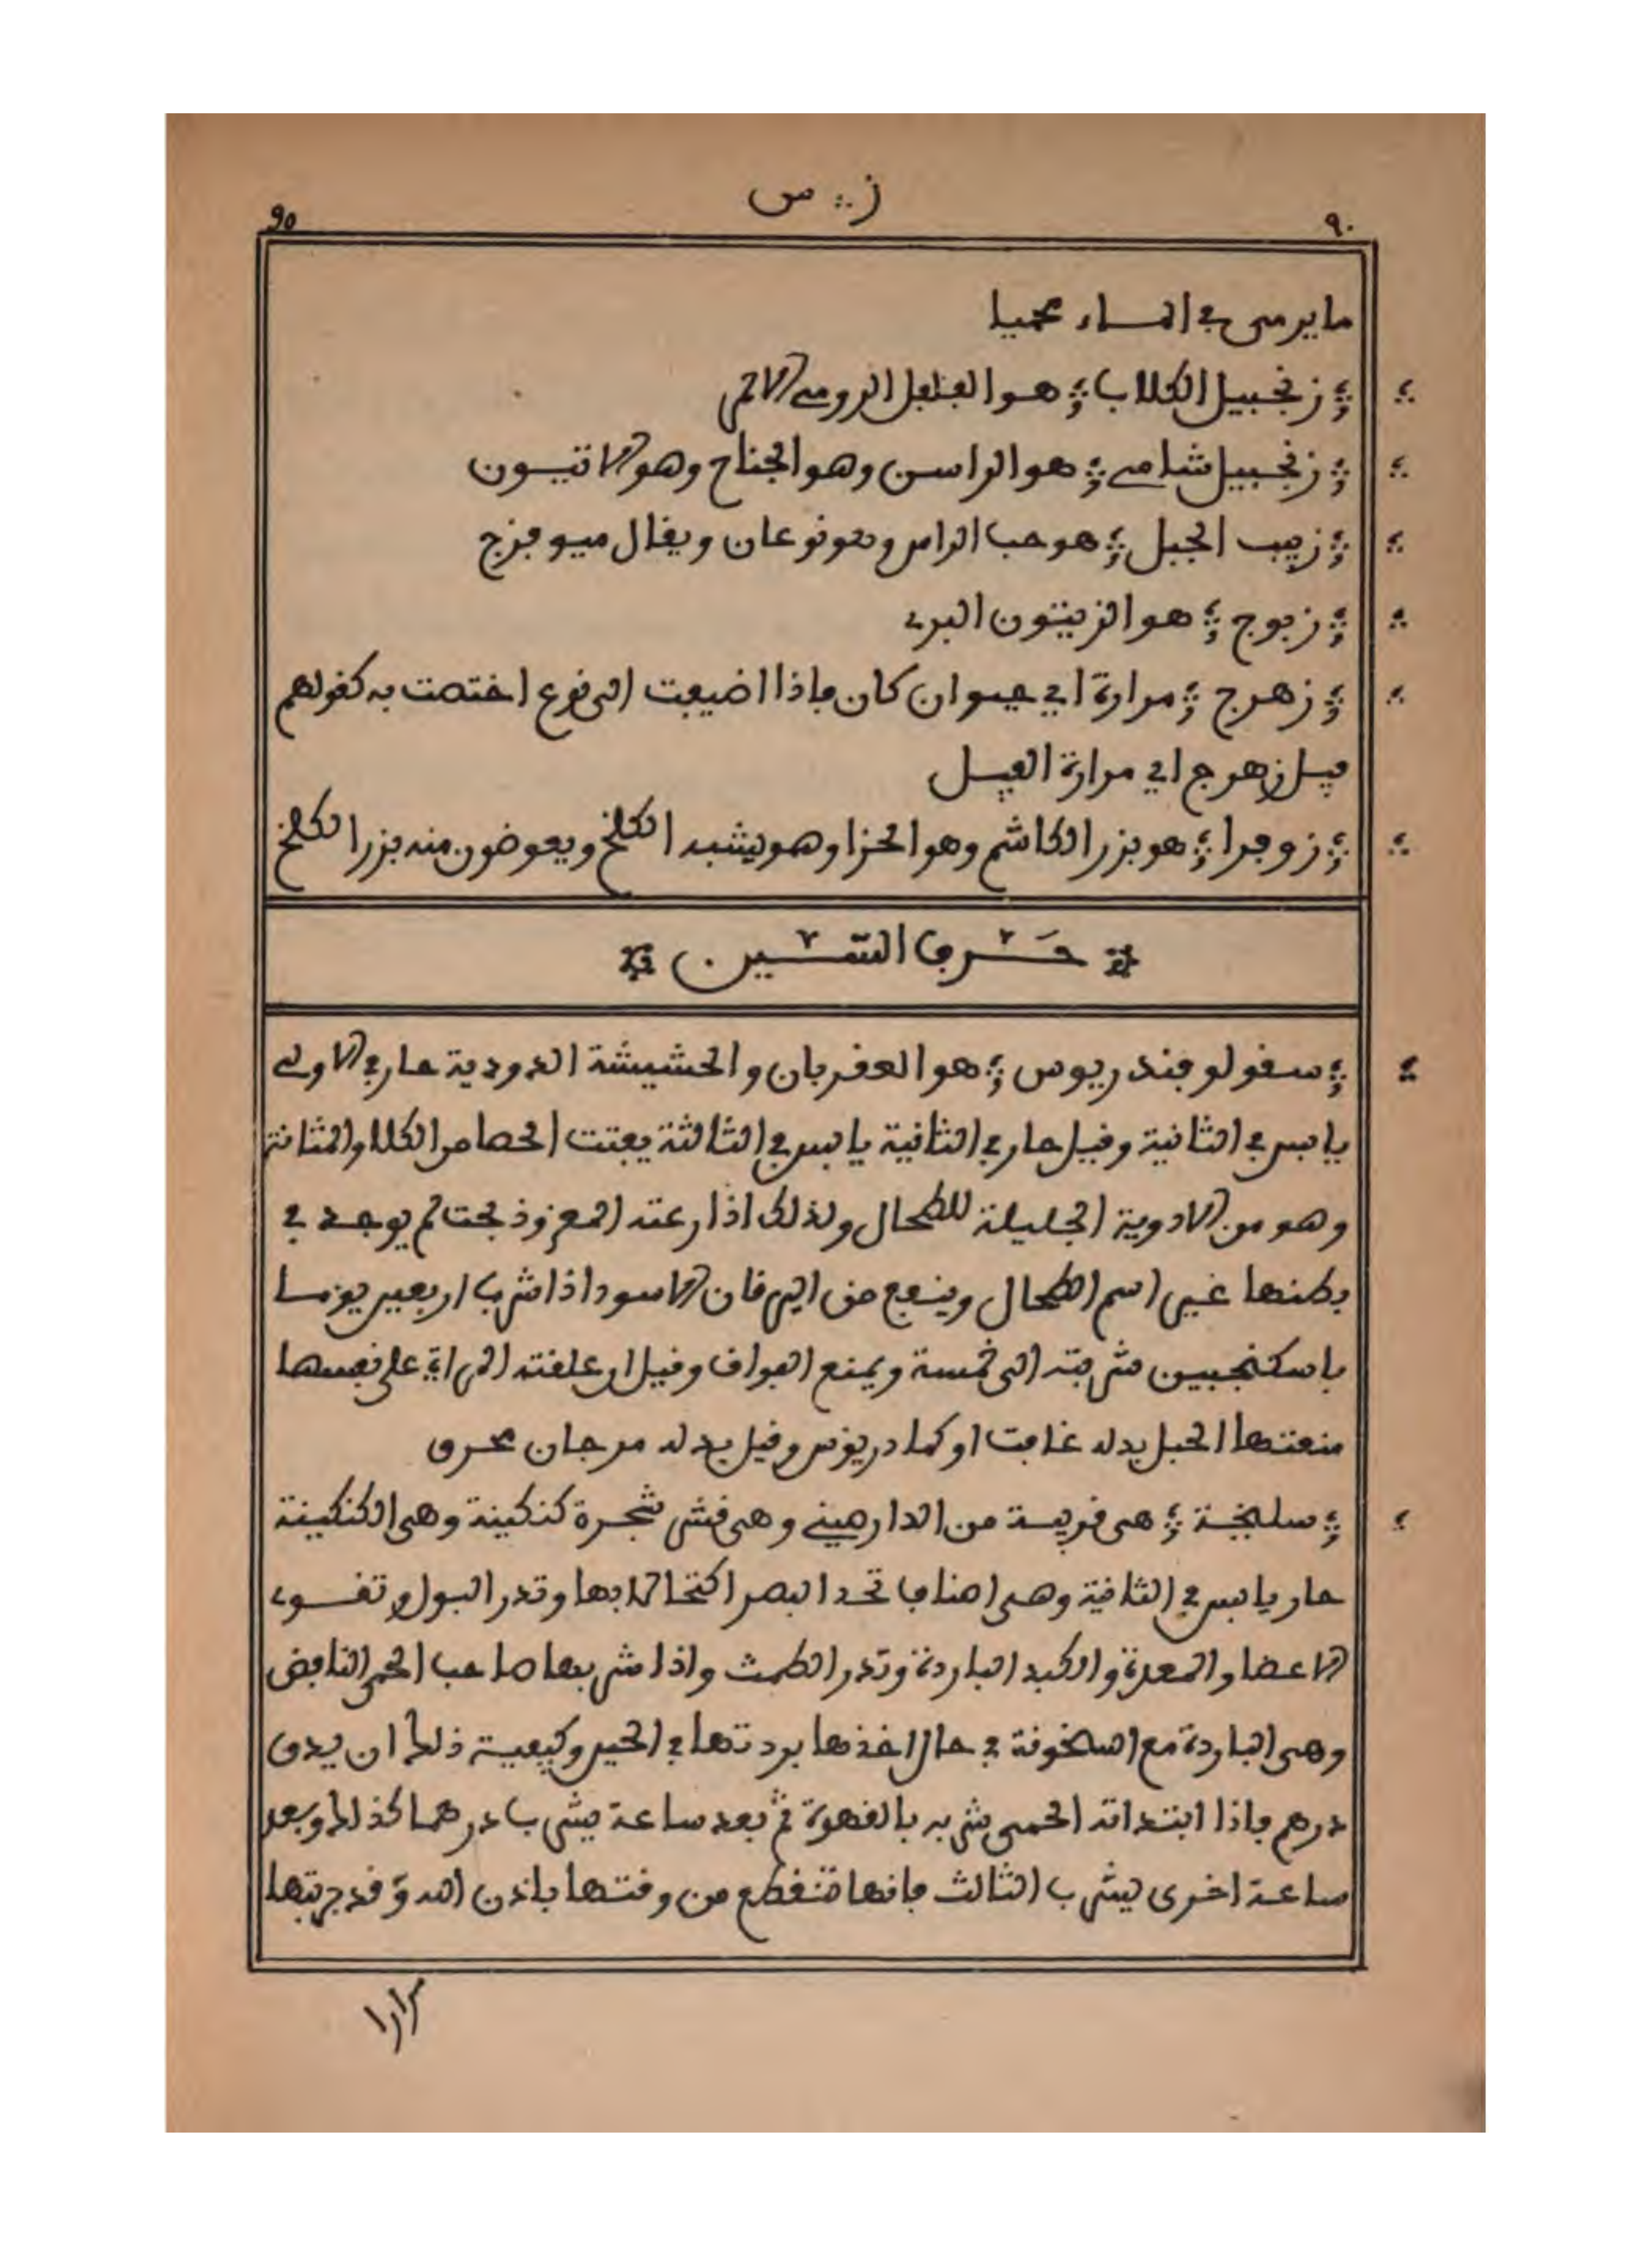 ز ؞ س
٩٠ 90
ما يرمى في الماء محميا
؞ زنجبيل الكلاب ؞ هو الفلفل الرومي الاحمر
؞ زنجبيل شامي ؞ هو الراسن وهو الجناح وهو الانيسون
؞ زبيب الجبل ؞ هو حب الراس وهو نوعان ويقال ميوفزج
؞ زبوج ؞ هو الزيتون البري
؞ زهرج ؞ مرارة اي حيوان كان فاذا اضيفت الى نوع اختصت به كقولهم
فيل زهرج اي مرارة الفيل
؞ زوفرا ؞ هو بزر الكاشم وهو الحزا وهو يشبه الكلخ ويعوضون منه بزر الكلخ
حرف السين
؞ سقولوفندريوس ؞ هو العقربان والحشيشة الدودية حار في الاولى
يابس في الثانية وقيل حار في الثانية يابس في الثالثة يفتت الحصا من الكلا والمثانة
وهو من الادوية الجليلة للطحال ولذلك اذا رعته المعز وذبحت لم يوجد في
بطنها غير اسم الطحال وينفع من اليرقان الاسود اذا شرب اربعين يوما
باسكنجبين شربته الى خمسة ويمنع الفواق وقيل ان علقته المراة على نفسها
منعتها الحبل بدله غافت او كمادريوس وقيل بدله مرجان محرق
؞ سليخة ؞ هي قريبة من الدارصيني وهي قشر شجرة كنكينة وهي الكنكينة
حار يابس في الثانية وهي اصناف تحد البصر اكتحالا بها وتدر البول وتقوي
الاعضا والمعدة والكبد الباردة وتدر الطمث واذا شربها صاحب الحمى النافض
وهي الباردة مع السخونة في حال اخذها بردتها في الحين وكيفية ذلك ان يدق
درهم فاذا ابتداته الحمى شربه بالقهوة ثم بعد ساعة يشرب درهما كذلك وبعد
ساعة اخرى يشرب الثالث فانها تنقطع من وقتها باذن الله وقد جربتها
مرارا